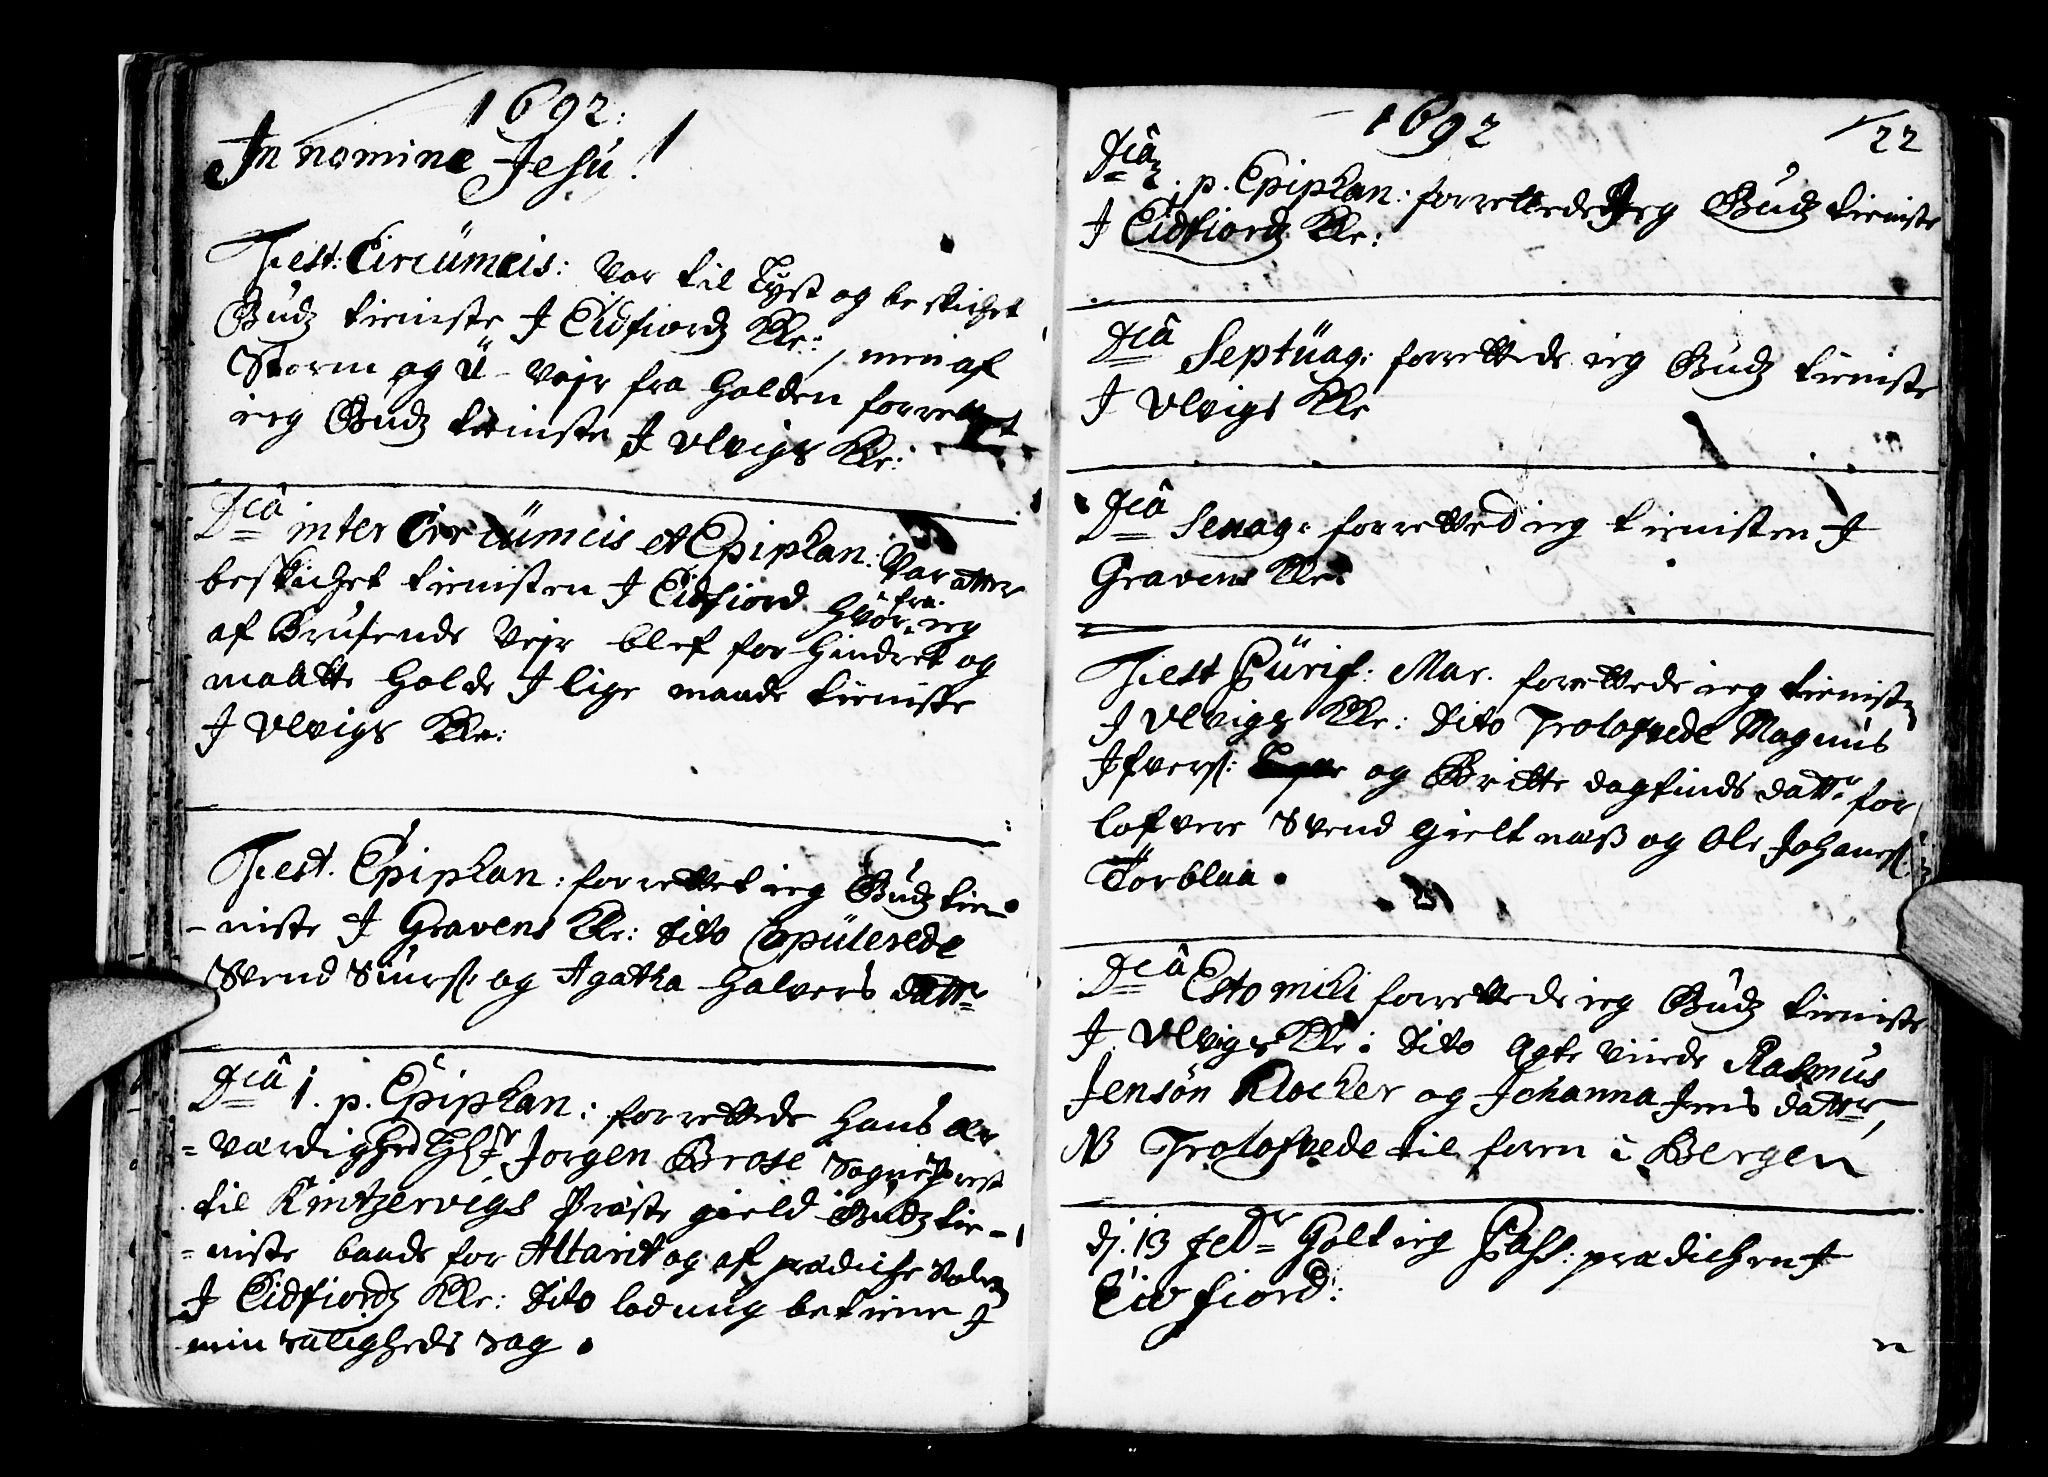 1692.
In nomine Jesu!
Fest: Circumcis: Var til lyst og beskichet
Gudz tieniste J Eidfiordz Kle: men af
Storm og U-vejr fra holden forrettet
ieg Gudz tieniste J Ulvigs Kle:
Dca inter Circumcis et Epiphan: Var atter
beskichet tienisten J Eidfiord hvor fra ieg
af Brusende Vejr blef for hindret og
maatte holde J lige maade tieniste
J Ulvigs Kle:
Fest. Epiphan: forrettet ieg Gudz tie-
-niste J Gravens Kle: dito Copulerede
Svend Siurs: og Agatha Halvers datt:
Dca 1. p. Epiphan: forrettede hans Ær
-værdighed Hr Jørgen Brose Sogne Prest
til Kintzervigs Præste gield Gudz tie-
-niste baade for Altaret og af prædiche Stolen
J Eidfiordz Kle: dito lod mig betiene J
min saligheds sag.
1692
22
Dca 2. p. Epiphan: forrettede Jeg Gudz tieniste
J Eidfiordz Kle:
Dca Septuag: forrettede ieg Gudz tieniste
J Ulvigs Kle
Dca Sexag: forretted ieg tienisten J
Gravens Kle:
Fest Purif: Mar. forrettede ieg tienisten
J Ulvigs Kle: dito Trolofvede Magnus
Ifvers: og Britte dagfinds datt: for
lofvere Svend gieltnæss og Ole Johans:
Torblaa.
Dca Esto mihi forrettede ieg Gudz tieniste
J Ulvigs Kle: dito Egte viede Rasmus
Jensøn Klocker og Johanna Jens datt:,
NB Trolofvede til forn i Bergen
dj. 13 Febr: Holt ieg Pass: prædichen J
Eidfiord: